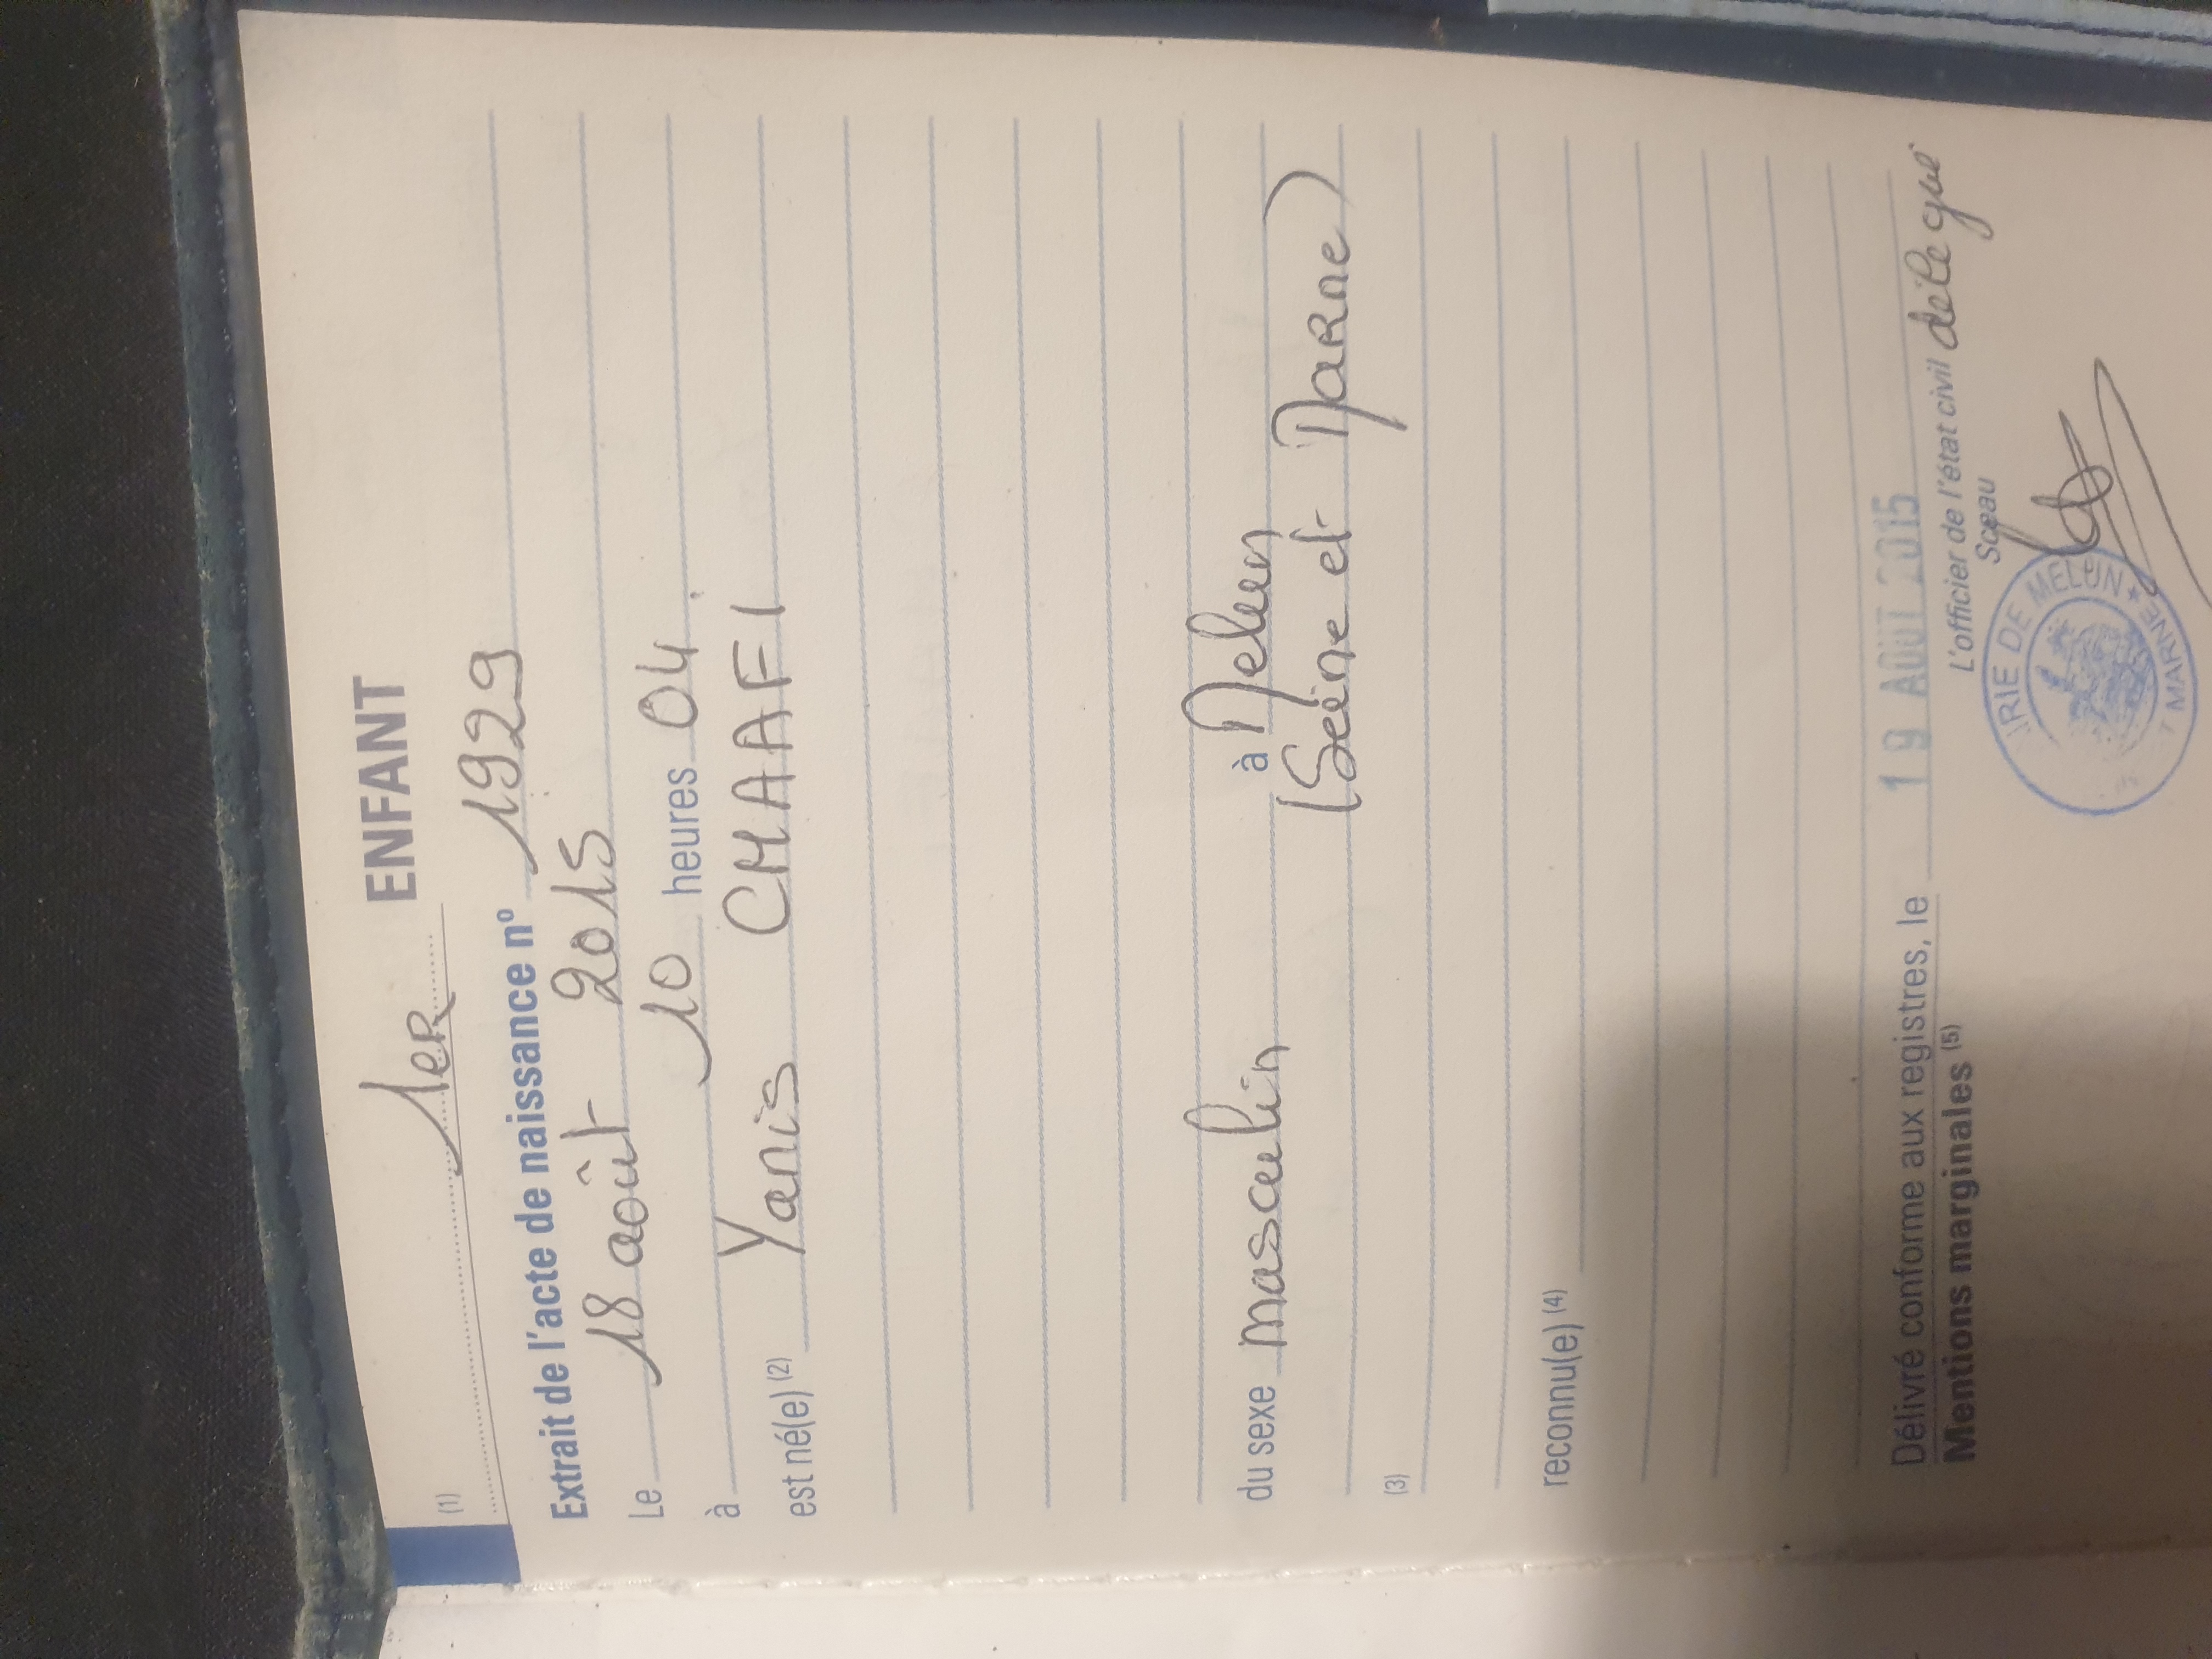 (1) 1er ENFANT
Extrait de l'acte de naissance nº 1929
Le 18 août 2015
à 10 heures 04
est né(e) (2) Yanis CHAAFI
du sexe masculin à Melun
(Seine et Marne)
(3)
reconnu(e) (4)
Délivré conforme aux registres, le 19 AOUT 2015
Mentions marginales (5) L'officier de l'état civil délégué
Sceau
IRIE DE MELUN ★
T MARNE